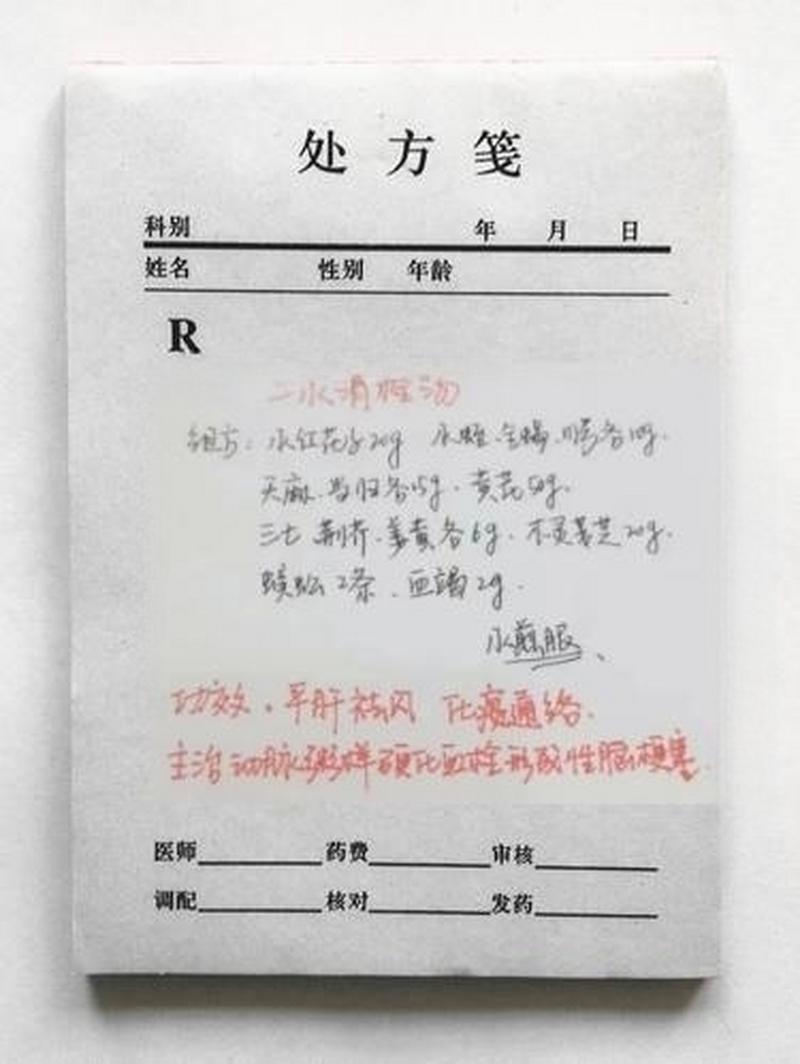 处方笺
科别 年 月 日
姓名 性别 年龄
R
二水清栓汤
组方：水红花子20g 水蛭、全蝎、各10g.
天麻、当归各15g、黄芪50g.
三七 荆芥、姜黄各6g、灵芝20g.
蜈蚣2条、血竭2g.
水煎服、
功效、平肝祛风 化瘀通络.
主治动脉粥样硬化血栓形成性脑梗塞.
医师 药费 审核
调配 核对 发药